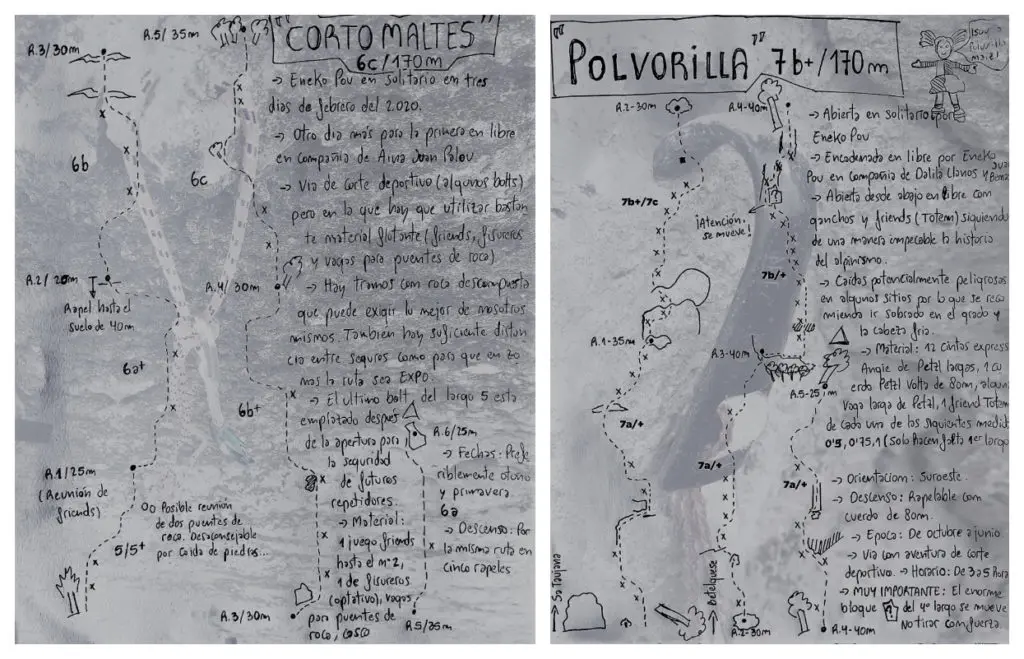 "CORTO MALTES"
6c/170m
R.3/30m
R.5/35m
→ Eneko Pou en solitario en tres
dias de febrero del 2.020.
→ Otro dia más para la primera en libre
en compañia de Aina Joan Palou
→ Via de corte deportivo (algunos bolts)
pero en la que hay que utilizar bastan
te material flotante (friends, fisureros
y vagas para puentes de roca)
→ Hay tramos con roca descompuesta
que puede exigir lo mejor de nosotros
mismos. Tambien hay suficiente distan
cia entre seguros como para que en zo
nas la ruta sea EXPO.
→ El ultimo bolt, del largo 5 está
emplazado despues
de la apertura para
la seguridad
de futuros
repetidores.
→ Material:
1 juego friends
hasta el nº2,
1 de fisureros
(optativo), vagas
para puentes de
roca, casco
→ Fechas: Prefe
riblemente otoño
y primavera
→ Descenso: Por
la misma ruta en
cinco rapeles
6b
6c
R.2/20m
Rapel hasta el
suelo de 40m
R.4/30m
6a+
6b+
R.6/25m
R.1/25m
(Reunión de
friends)
6a
Posible reunión
de dos puentes de
roca. Desaconsejable
por caida de piedras...
5/5+
R.3/30m
R.5/35m
"POLVORILLA" 7b+/170m
R.2-30m
R.4-40m
→ Abierta en solitario por
Eneko Pou
→ Encadenada en libre por Eneko
Pou en compañia de Dalila Llanos y
→ Abierta desde abajo en libre con
ganchos y friends (Totem) siguiendo
de una manera impecable la historia
del alpinismo.
→ Caidas potencialmente peligrosas
en algunos sitios por lo que se reco
mienda ir sobrado en el grado y
la cabeza fria.
→ Material: 12 cintas express
Angie de Petzl largas, 1 cu
erda Petzl Volta de 80m, algun
Vaga larga de Petzl, 1 friend Totem
de cada una de las siguientes medid
0'5, 0'75, 1 (Solo hacen falta 1er largo
→ Orientacion: Suroeste.
→ Descenso: Rapelable con
cuerda de 80m.
→ Epoca: De octubre a junio
→ Via con aventura de corte
deportivo. → Horario: De 3 a 5 hora
→ MUY IMPORTANTE: El enorme
bloque del 4º largo se mueve
No tirar con fuerza.
7b+/7c
¡Atención,
se mueve!
7b/+
R.1-35m
R.3-40m
R.5-25m
7a/+
7a/+
7a/+
Betelguese
R.2-30m
R.4-40m